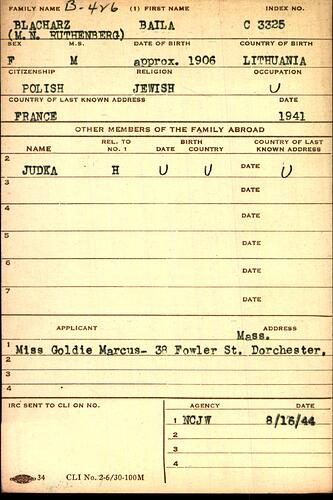 FAMILY NAME B-426 (1) FIRST NAME INDEX NO.
BLACHARZ BAILA C 3325
(M.N. RUTHENBERG)
SEX M.S. DATE OF BIRTH COUNTRY OF BIRTH
F M approx. 1906 LITHUANIA
CITIZENSHIP RELIGION OCCUPATION
POLISH JEWISH U
COUNTRY OF LAST KNOWN ADDRESS DATE
FRANCE 1941
OTHER MEMBERS OF THE FAMILY ABROAD
NAME REL. TO NO. 1 BIRTH DATE COUNTRY COUNTRY OF LAST KNOWN ADDRESS
2 JUDKA H U U DATE U
3 DATE
4 DATE
5 DATE
6 DATE
7 DATE
APPLICANT ADDRESS
Mass.
1 Miss Goldie Marcus- 38 Fowler St. Dorchester,
2
3
4
IRC SENT TO CLI ON NO. AGENCY DATE
1 NCJW 8/16/44
2
3
4
34 CLI No. 2-6/30-100M